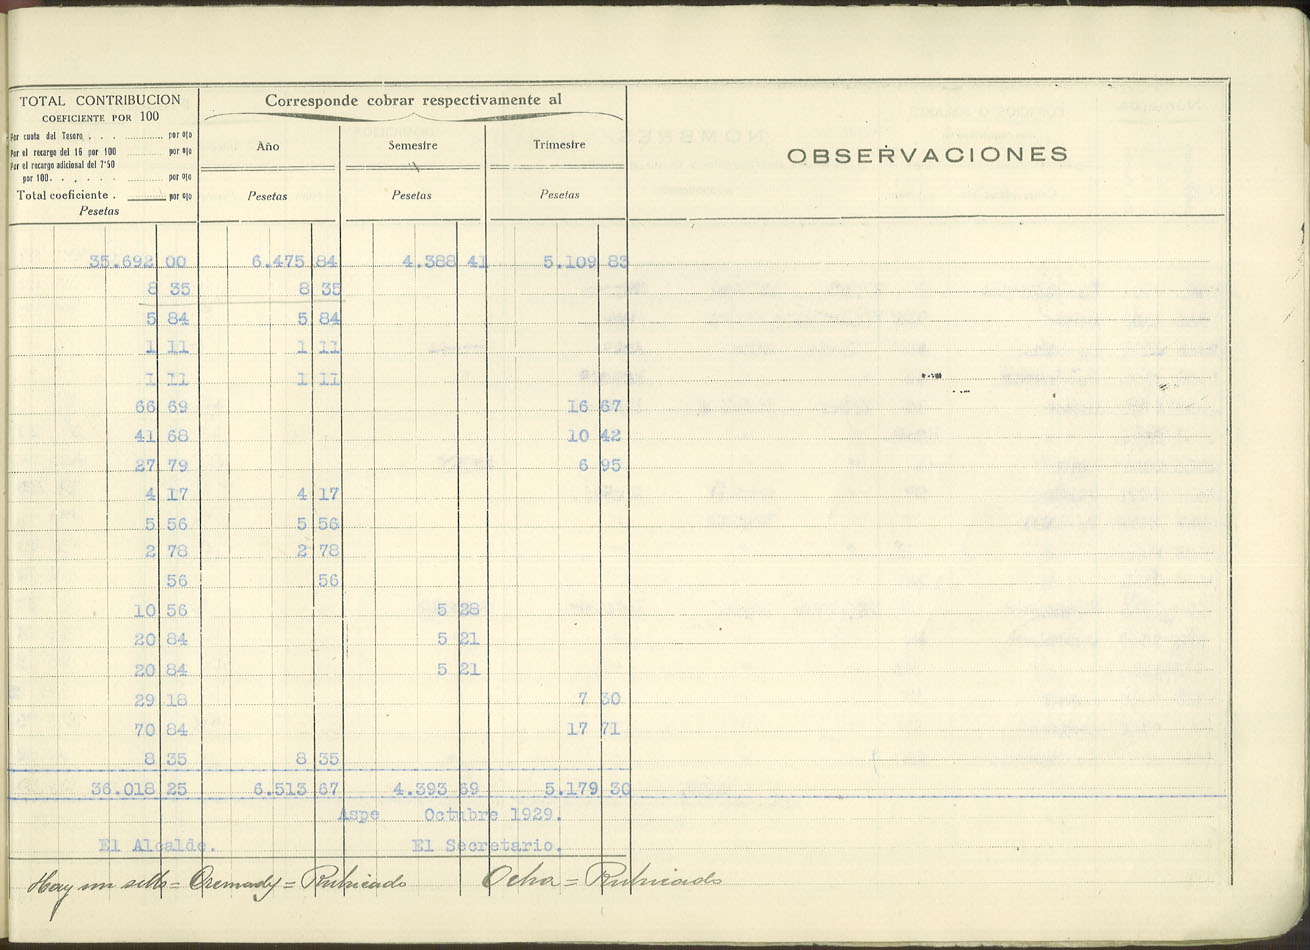 TOTAL CONTRIBUCION
COEFICIENTE POR 100
Por cuota del Tesoro . . . ............ por 0|0
Por el recargo del 16 por 100 ............ por 0|0
Por el recargo adicional del 7'50
por 100. . . . . . ............ por 0|0
Total coeficiente . ______ por 0|0
Pesetas
Corresponde cobrar respectivamente al
Año Semestre Trimestre
Pesetas Pesetas Pesetas
OBSERVACIONES
35.692 00 6.475 84 4.388 41 5.109 83
8 35 8 35
5 84 5 84
1 11 1 11
1 11 1 11
66 69 16 67
41 68 10 42
27 79 6 95
4 17 4 17
5 56 5 56
2 78 2 78
56 56
10 56 5 28
20 84 5 21
20 84 5 21
29 18 7 30
70 84 17 71
8 35 8 35
36.018 25 6.513 67 4.393 69 5.179 30
Aspe Octubre 1929.
El Alcalde. El Secretario.
Hay un sello = Cremady = Rubricado Ocha = Rubricado